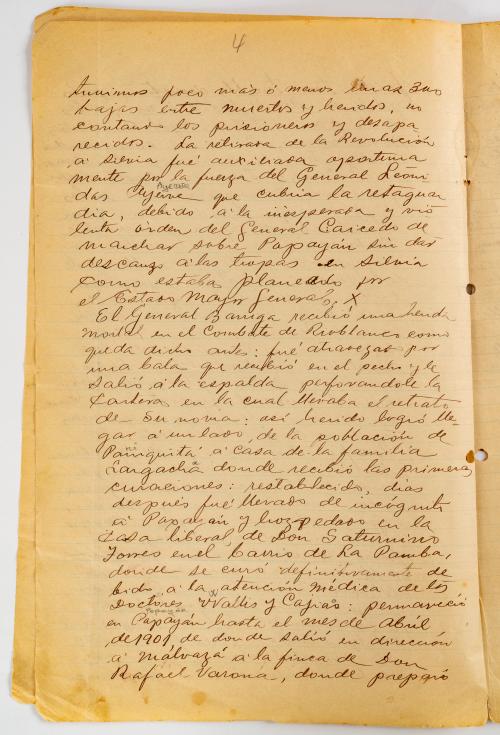 4
tuvimos poco mas ó menos unas 300
bajas entre muertos y heridos, no
contando los prisioneros y desapa
recidos. La retirada de la Revolución
á Silvia fué auxiliada oportuna
mente por la fuerza del General Leoni
das que cubria la retaguar
dia, debido á la inesperada y vio
lenta órden del General Caicedo de
marchar sobre Popayán sin dar
descanzo a las tropas en Silvia
como estaba planeado por
el Estado Mayor General. X
El General Barriga recibió una herida
mortal en el Combate de Rioblanco como
queda dicho antes: fué atravezado por
una bala que recibió en el pecho y le
salió á la espalda perforandole la
cartera en la cual llevaba el retrato
de su novia: asi herido logró lle
gar á un lado de la población de
Paniquitá á casa de la familia
Sargacha donde recibió las primeras
curaciones: restablecido, dias
después fué llevado de incógnito
á Popayán y hozpedado en la
casa liberal de Don Saturnino
Torres en el barrio de La Pamba,
donde se curó definitivamente de
bido á la atención médica de los
Doctores Valles y Cajiao: permaneció
Popayán
en Popayán hasta el mes de Abril
de 1901 de donde salió en dirección
á Málvazá a la finca de Don
Rafael Varona, donde preparó